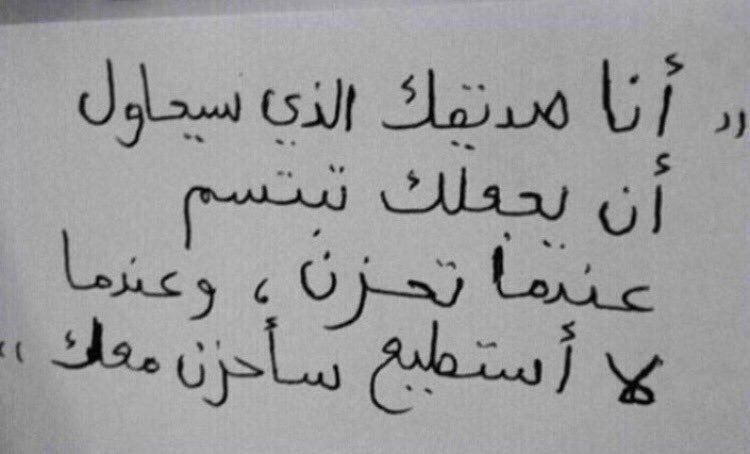 " أنا صديقك الذي سيحاول
أن يجعلك تبتسم
عندما تحزن ، وعندما
لا أستطيع سأحزن معك "